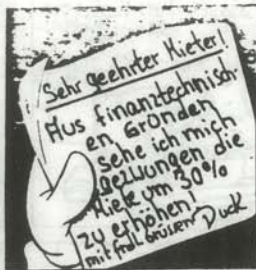 Sehr geehrter Mieter!
Aus finanztechnisch-
en Gründen
sehe ich mich
gezwungen die
Miete um 30%
zu erhöhen!
mit frdl. Grüssen Duck